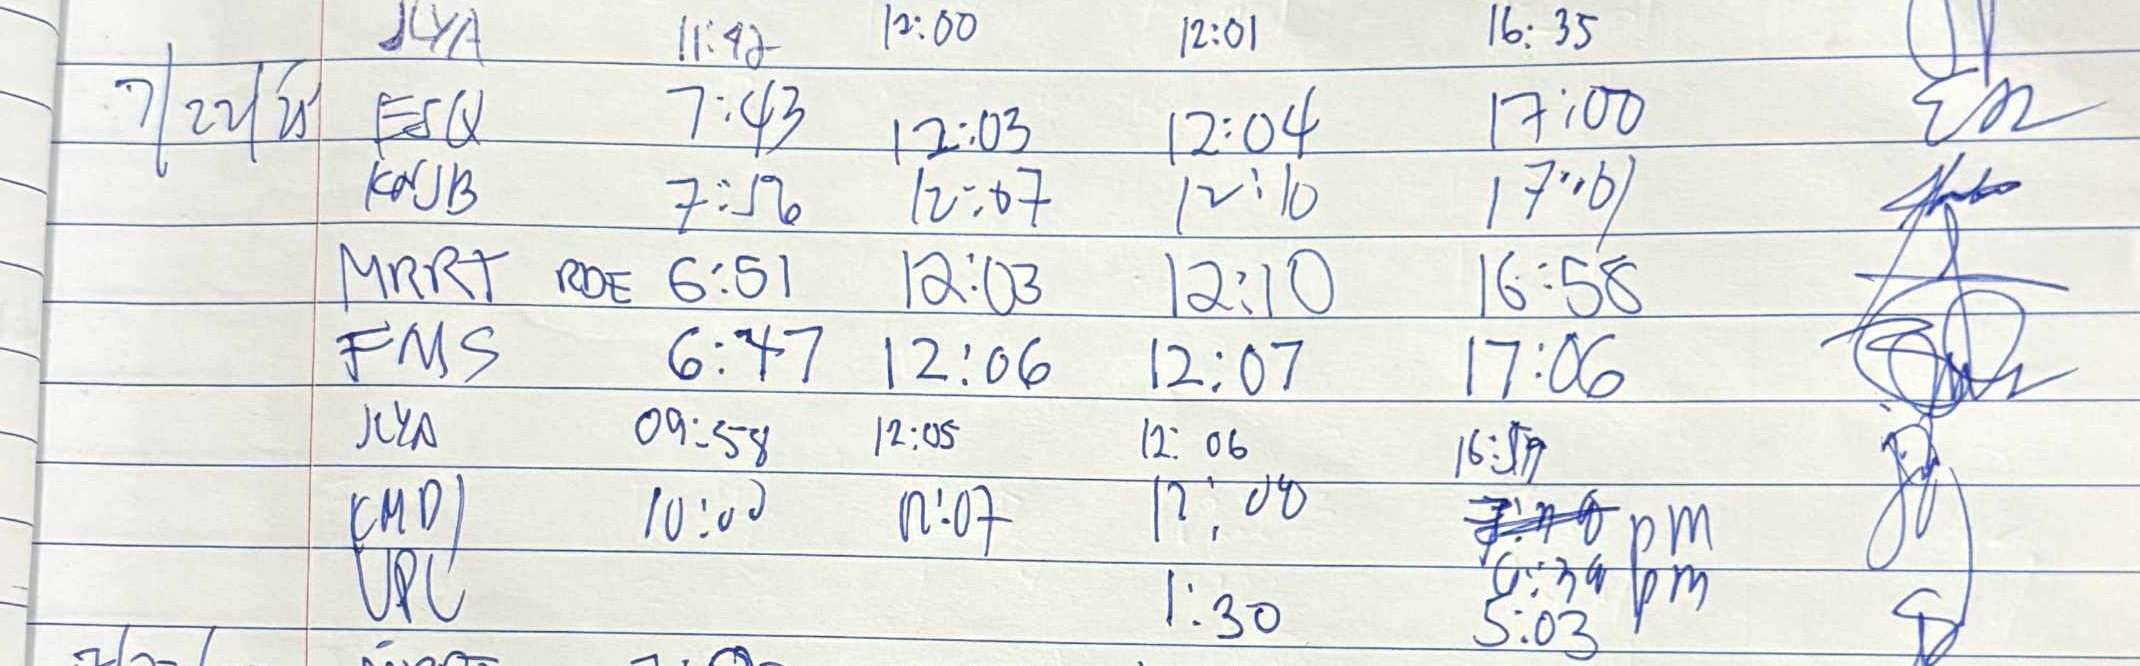 JLYA 11:42 12:00 12:01 16:35
7/22/25 ESQ 7:43 12:03 12:04 17:00
7:56 12:07 12:10 17:01
MRRT RDE 6:51 12:03 12:10 16:58
FMS 6:47 12:06 12:07 17:06
JLYA 09:58 12:05 12:06
KMDJ 10:00 12:07 12:08 pm
pm
1:30 5:03